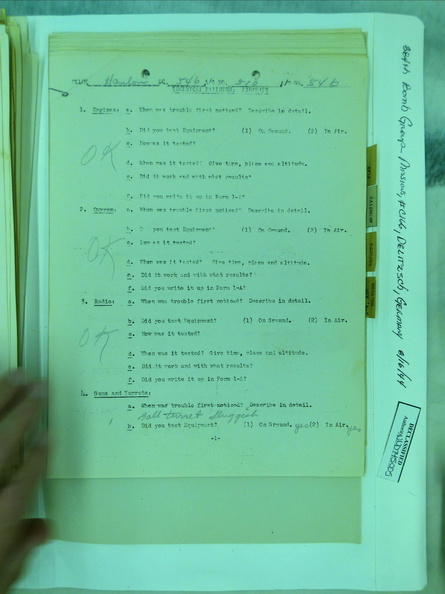 Hanlon 846 846
1. Engines: a. When was trouble first noticed? Describe in detail.
b. Did you test Equipment? (1) On Ground. (2) In Air.
c. How was it tested?
OK
d. When was it tested? Give time, place and altitude.
e. Did it work and with what results?
f. Did you write it up in Form 1-A?
2. a. When was trouble first noticed? Describe in detail.
b. Did you test Equipment? (1) On Ground. (2) In Air.
c. How was it tested?
OK
d. When was it tested? Give time, place and altitude.
e. Did it work and with what results?
f. Did you write it up in Form 1-A?
3. Radio: a. When was trouble first noticed? Describe in detail.
b. Did you test Equipment? (1) On Ground. (2) In Air.
c. How was it tested?
OK
d. When was it tested? Give time, place and altitude.
e. Did it work and with what results?
f. Did you write it up in Form 1-A?
4. Guns and Turrets:
a. When was trouble first noticed? Describe in detail.
Ball turret sluggish
b. Did you test Equipment? (1) On Ground. yes (2) In Air. yes
-1-
384th Bomb Group Mission, #166, Delitzsch, Germany 8/16/44
DECLASSIFIED